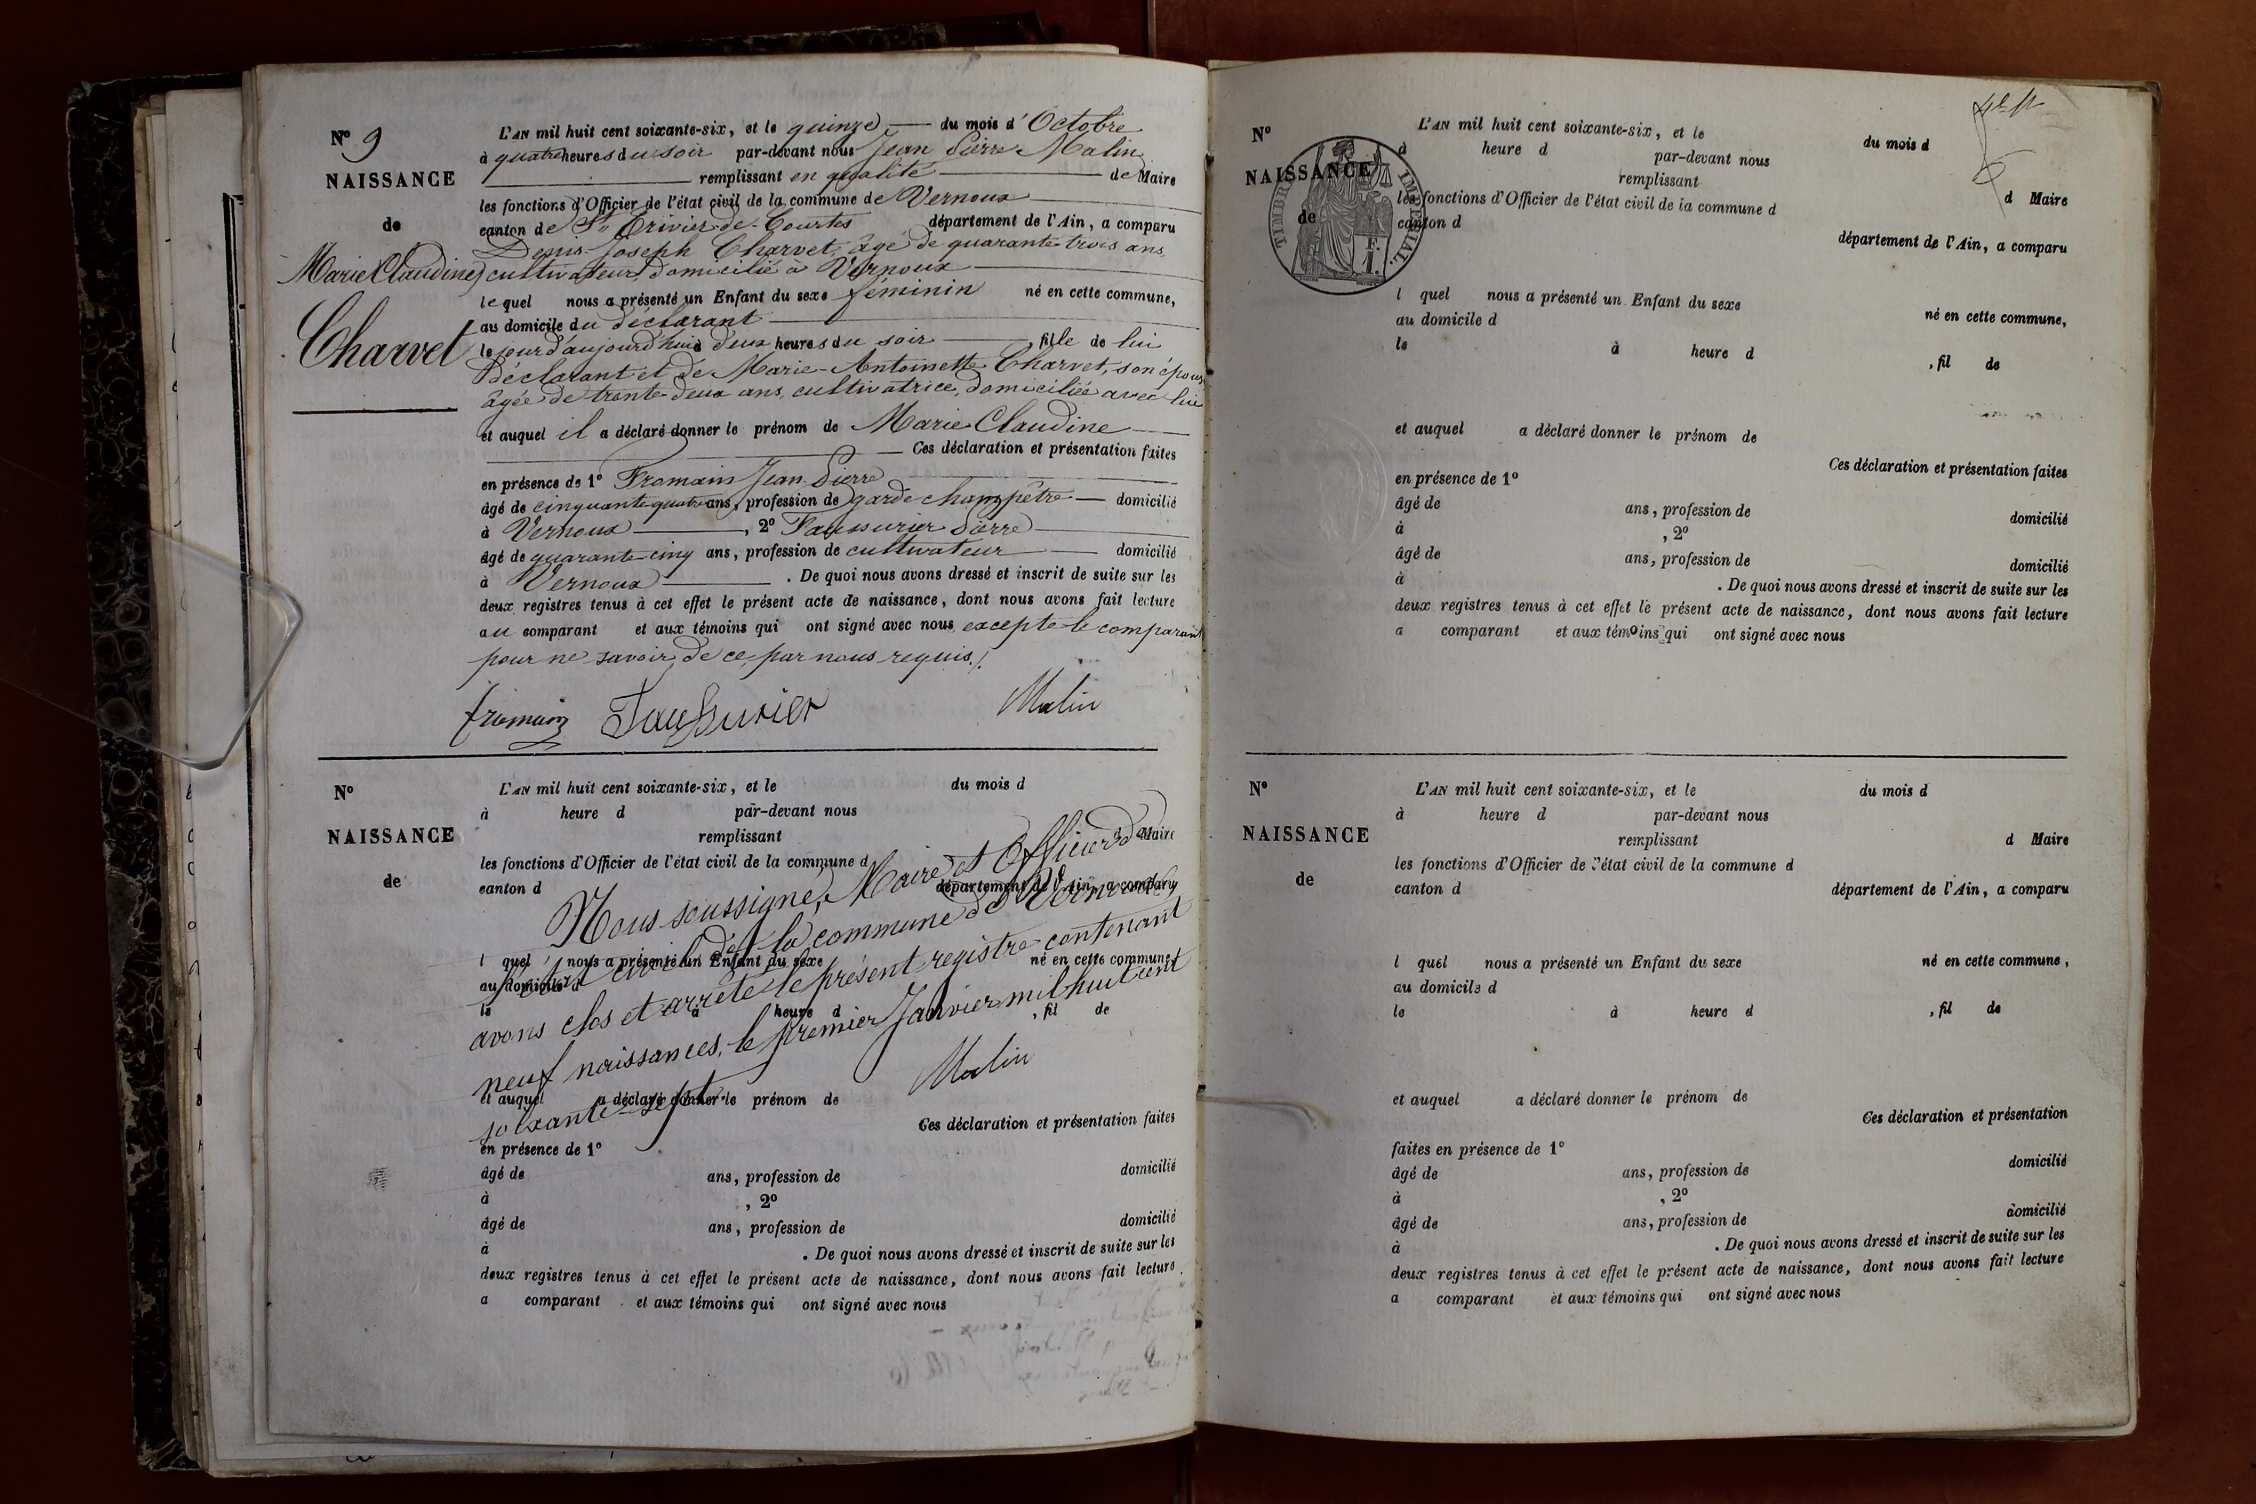 N° 9
NAISSANCE
de
Marie Claudine
Charvet
L'AN mil huit cent soixante-six, et le quinze du mois d'Octobre
à quatre heures du soir par-devant nous Jean Pierre Malin
remplissant en qualité de Maire
les fonctions d'Officier de l'état civil de la commune de Vernoux
canton de St Trivier-de-Courtes département de l'Ain, a comparu
Denis Joseph Charvet, âgé de quarante-trois ans,
cultivateur, domicilié à Vernoux
lequel nous a présenté un Enfant du sexe féminin né en cette commune,
au domicile du déclarant
le jour d'aujourd'hui à deux heures du soir, fille de lui
Déclarant et de Marie-Antoinette Charvet, son épouse
âgée de trente-deux ans, cultivatrice, domiciliée avec lui
et auquel il a déclaré donner le prénom de Marie Claudine
Ces déclaration et présentation faites
en présence de 1° Fromain Jean Pierre
âgé de cinquante-quatre ans, profession de garde champêtre domicilié
à Vernoux, 2° Faussurier Pierre
âgé de quarante-cinq ans, profession de cultivateur domicilié
à Vernoux. De quoi nous avons dressé et inscrit de suite sur les
deux registres tenus à cet effet le présent acte de naissance, dont nous avons fait lecture
au comparant et aux témoins qui ont signé avec nous, excepté le comparant
pour ne savoir, de ce par nous requis./.
fromain Faussurier Malin
N°
NAISSANCE
de
L'AN mil huit cent soixante-six, et le du mois d
à heure d par-devant nous
remplissant d Maire
les fonctions d'Officier de l'état civil de la commune d
canton d département de l'Ain, a comparu
Nous soussigné, Maire et Officier de
l'état civil de la commune de Vernoux,
l quel nous a présenté un Enfant du sexe né en cette commune,
au domicile d
avons clos et arrêté le présent registre contenant
le à heure d , fil de
neuf naissances, le premier Janvier mil huit cent
soixante-sept.
Malin
et auquel a déclaré donner le prénom de
Ces déclaration et présentation faites
en présence de 1°
âgé de ans, profession de domicilié
à , 2°
âgé de ans, profession de domicilié
à . De quoi nous avons dressé et inscrit de suite sur les
deux registres tenus à cet effet le présent acte de naissance, dont nous avons fait lecture
a comparant et aux témoins qui ont signé avec nous
N°
NAISSANCE
de
TIMBRE IMPERIAL
L'AN mil huit cent soixante-six, et le du mois d
à heure d par-devant nous
remplissant d Maire
les fonctions d'Officier de l'état civil de la commune d
canton d département de l'Ain, a comparu
l quel nous a présenté un Enfant du sexe né en cette commune,
au domicile d
le à heure d , fil de
et auquel a déclaré donner le prénom de
Ces déclaration et présentation faites
en présence de 1°
âgé de ans, profession de domicilié
à , 2°
âgé de ans, profession de domicilié
à . De quoi nous avons dressé et inscrit de suite sur les
deux registres tenus à cet effet le présent acte de naissance, dont nous avons fait lecture
a comparant et aux témoins qui ont signé avec nous
N°
NAISSANCE
de
L'AN mil huit cent soixante-six, et le du mois d
à heure d par-devant nous
remplissant d Maire
les fonctions d'Officier de l'état civil de la commune d
canton d département de l'Ain, a comparu
l quel nous a présenté un Enfant du sexe né en cette commune,
au domicile d
le à heure d , fil de
et auquel a déclaré donner le prénom de
Ces déclaration et présentation
faites en présence de 1°
âgé de ans, profession de domicilié
à , 2°
âgé de ans, profession de domicilié
à . De quoi nous avons dressé et inscrit de suite sur les
deux registres tenus à cet effet le présent acte de naissance, dont nous avons fait lecture
a comparant et aux témoins qui ont signé avec nous